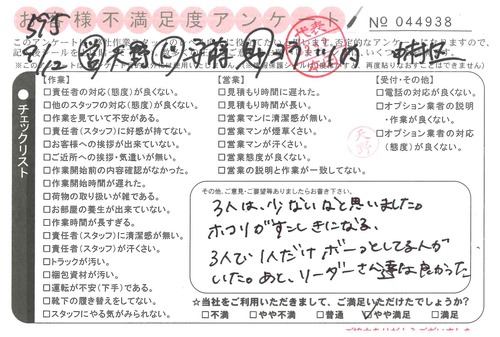 お客様不満足度アンケート
No 044938
代表
【作業】
□責任者の対応(態度)が良くない。
□他のスタッフの対応(態度)が良くない。
□作業を見ていて不安がある。
□責任者(スタッフ)に好感が持てない。
□お客様への挨拶が出来ていない。
□ご近所への挨拶・気遣いが無い。
□作業開始前の内容確認がなかった。
□作業開始時間が遅れた。
□荷物の取り扱いが雑である。
□お部屋の養生が出来ていない。
□作業時間が長すぎる。
□責任者(スタッフ)に清潔感が無い。
□責任者(スタッフ)が汗くさい。
□トラックが汚い。
□梱包資材が汚い。
□運転が不安(下手)である。
□靴下の履き替えをしてない。
□スタッフにやる気がみられない。
【営業】
□見積もり時間に遅れた。
□見積もり時間が長い。
□営業マンに清潔感が無い。
□営業マンが煙草くさい。
□営業マンが汗くさい。
□営業態度が良くない。
□営業の説明と作業が一致してない。
【受付・その他】
□電話の対応が良くない。
□オプション業者の説明
・作業が良くない。
□オプション業者の対応
(態度)が良くない。
天野
●チェックリスト
その他、ご意見・ご要望等ありましたらお書き下さい。
3人は、少ないなと思いました。
ホコリがすこし きになる。
3人で 1人だけ ボーっとしてる人が
いた。あと、リーダーさん達は良かった
☆当社をご利用いただきまして、ご満足いただけたでしょうか?
□不満 □やや不満 □普通 ☑やや満足 □満足